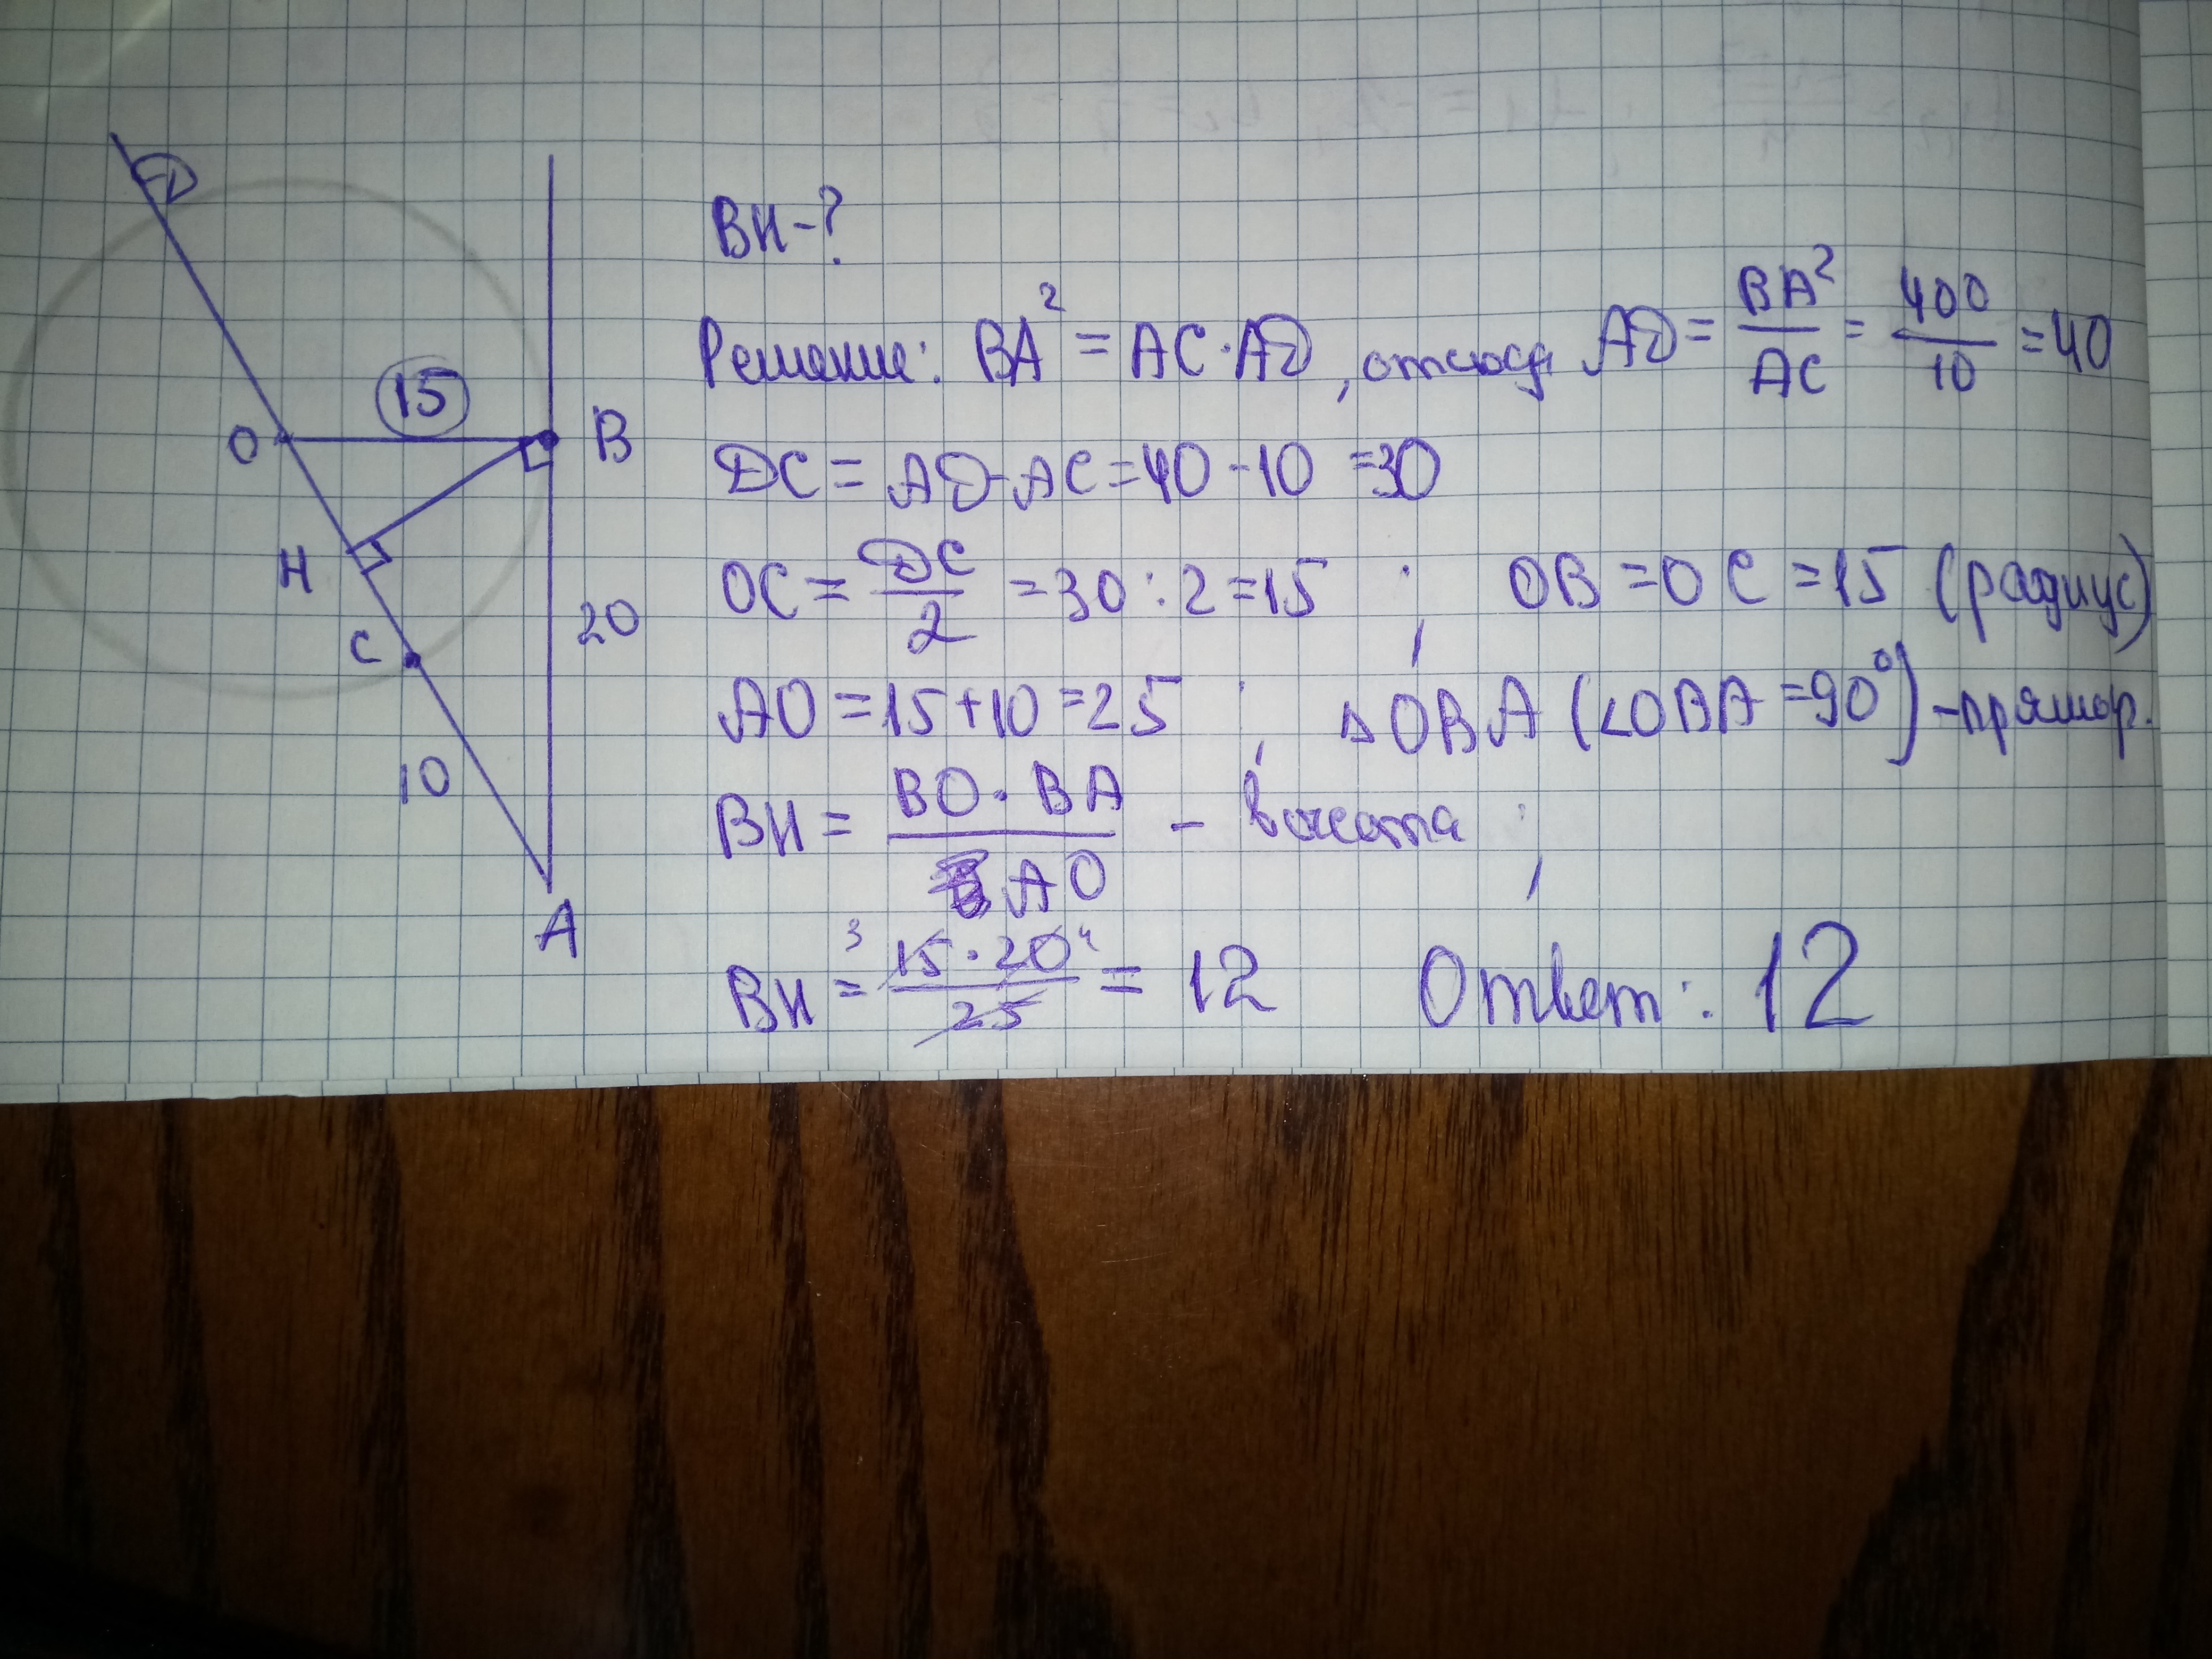 D
15
O
B
H
C
20
10
A
BH-?
Решение: BA² = AC·AD, отсюда AD = BA²/AC = 400/10 = 40
DC = AD-AC = 40-10 = 30
OC = DC/2 = 30:2 = 15 ; OB = OC = 15 (радиус)
AO = 15+10 = 25 ; △OBA (∠OBA = 90°) - прямоуг.
BH = BO·BA/AO - высота ;
BH = 15·20/25 = 12 Ответ: 12
3 4